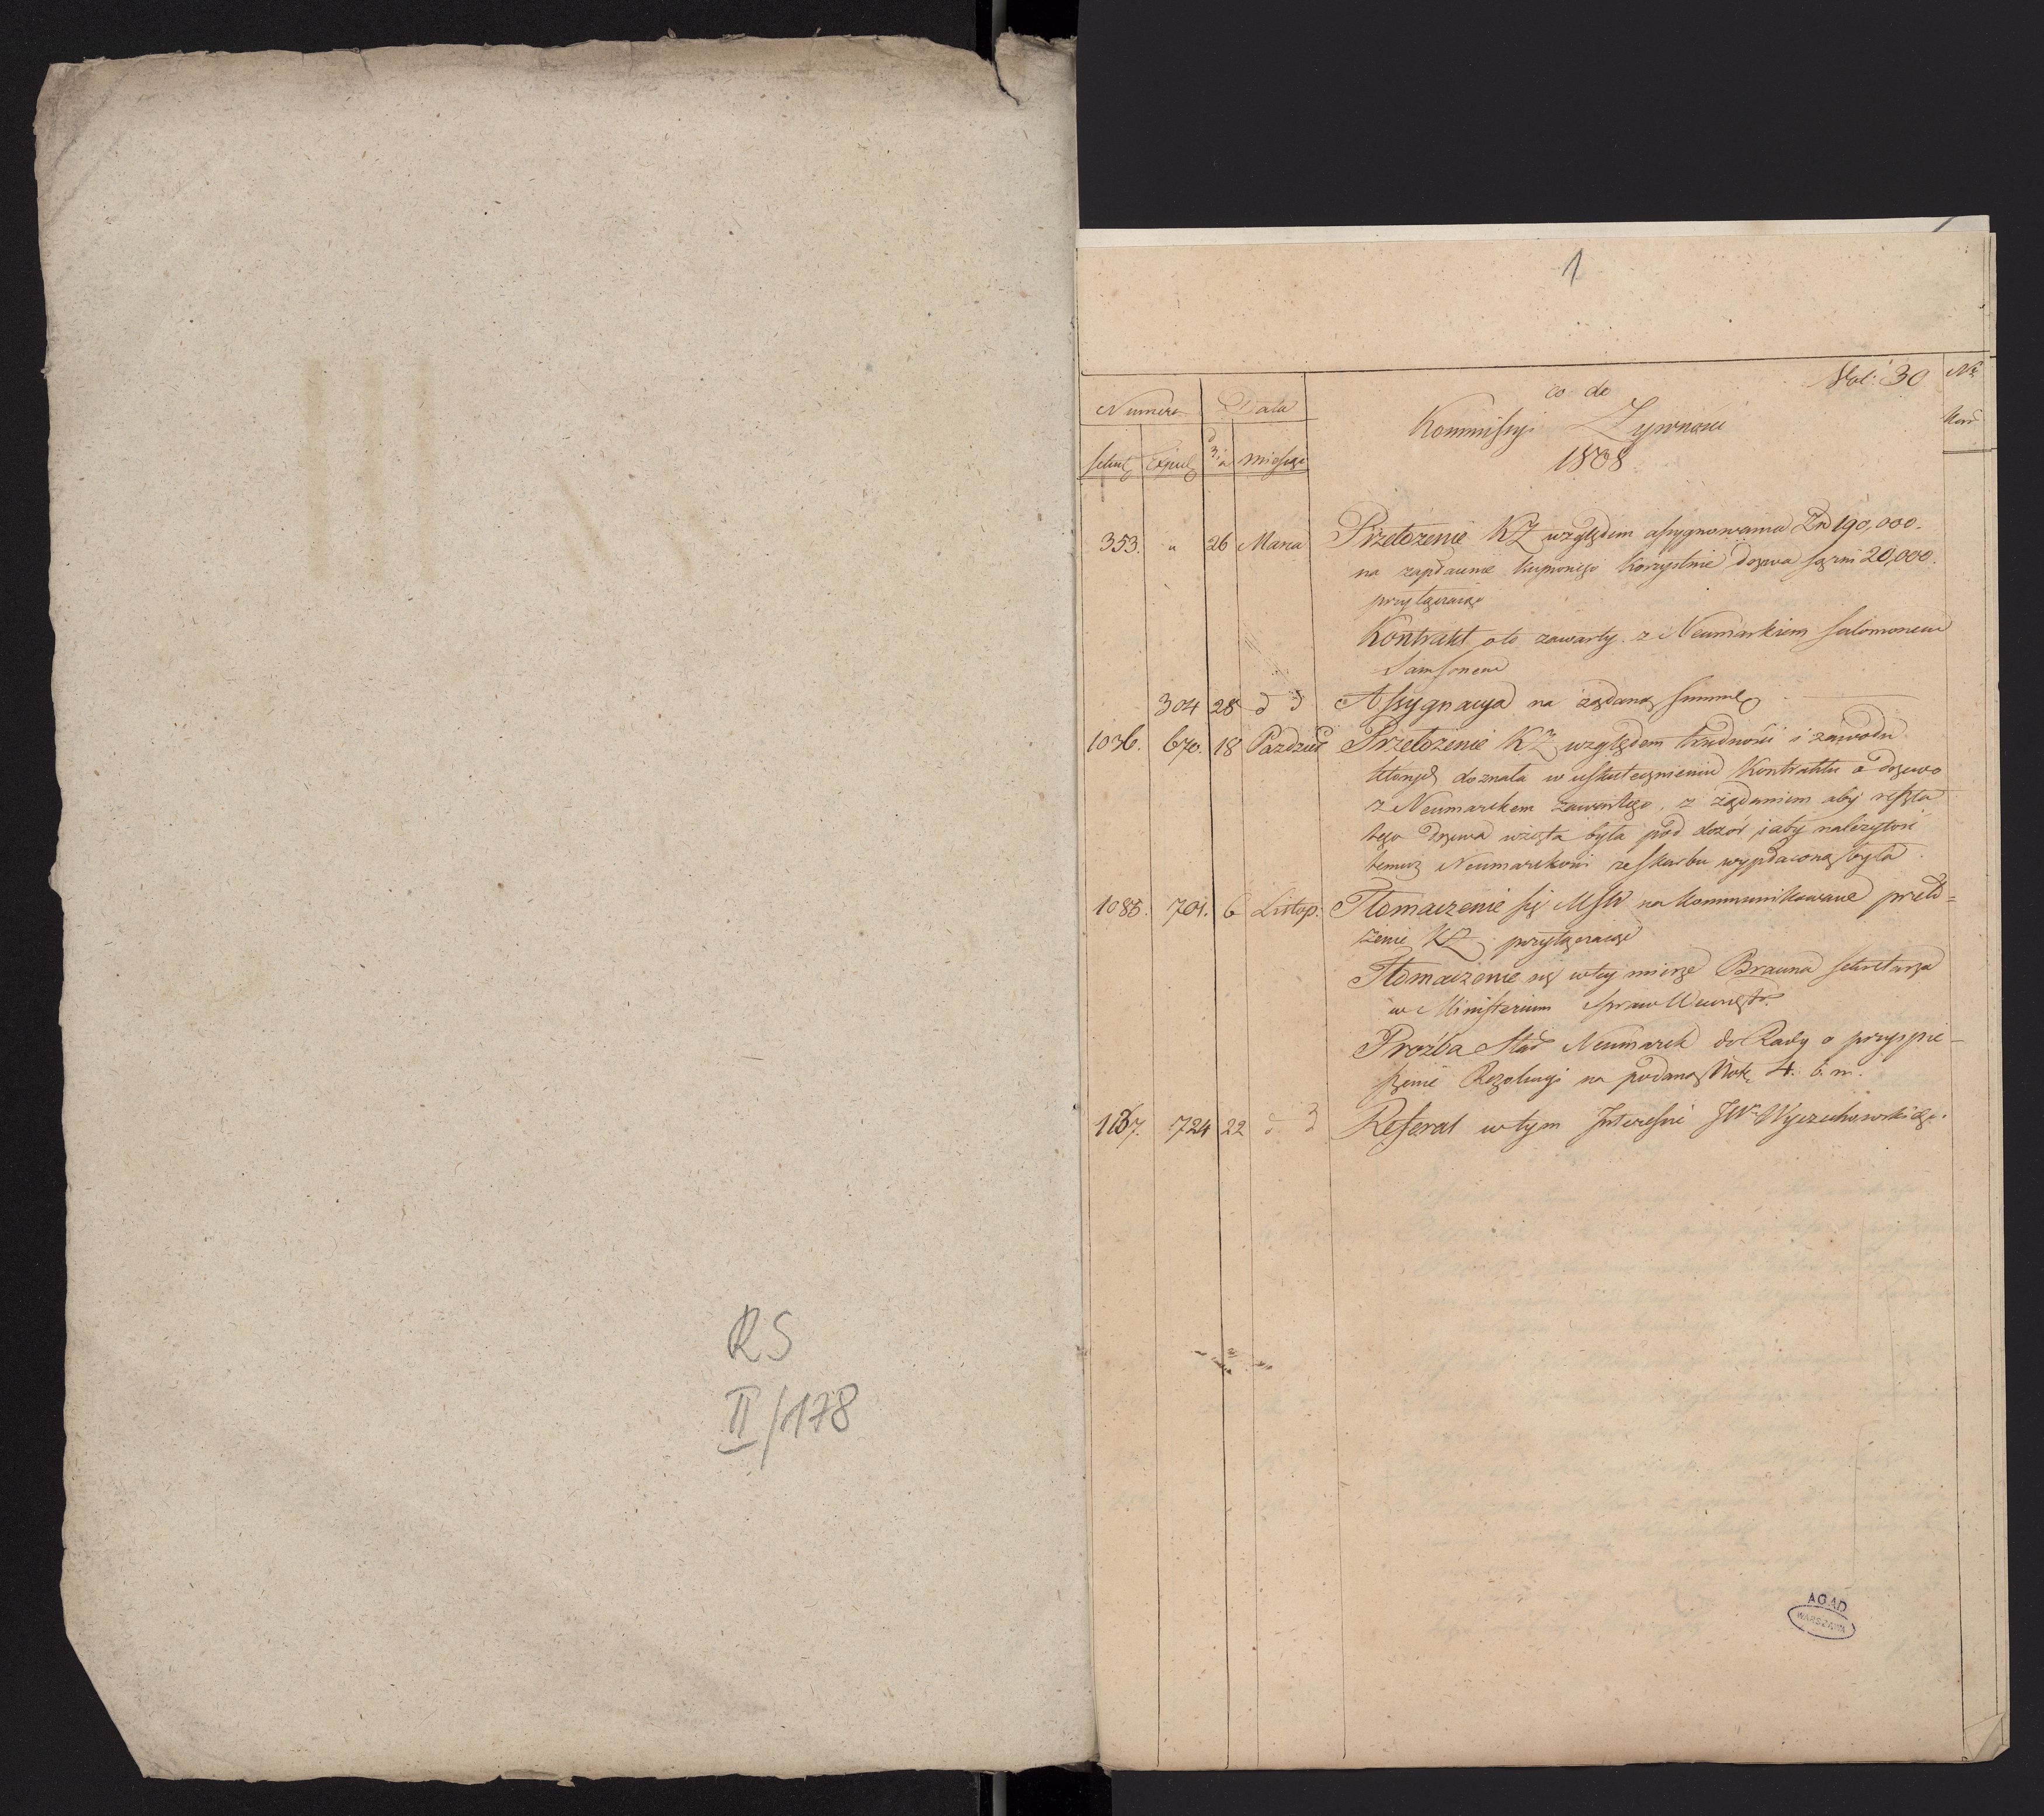 RS
II/178
1
Vol: 30
Nr
Numera Data co do
Kommissyi Zywnosci
1808
Sekret Exped dnia miesiąc
353. " 26 Marca Przełożenie KZ względem assygnowania Zł 190,000.
na zapłacenie kupionego korzystnie drzewa sążni 20,000.
przyłączając
Kontrakt oto zawarty z Neumarkiem Salomonem
Samsonem
304 28 d d Assygnacya na żądaną summę
1036. 670. 18 Pazdzier Przełożenie KZ względem trudności i zawodu
których doznała w uskutecznieniu Kontraktu o drzewo
z Neumarkem zawartego, z żądaniem aby reszta
tego drzewa wzięta była pod dozór i aby należytość
temuż Neumarkowi ze Skarbu wypłaconą była
1085. 701. 6 Listop. Tłomaczenie się MSW na kommunikowane przeło=
żenie KZ przyłączając
Tłomaczenie się w tey mierze Brauna Sekretarza
w Ministerium Spraw Wewnętr.
Proźba Neumarek do Rady o przyspie-
szenie Rezolucyi na podaną Notę 4. b. m.
1137. 724 22 d d Referat w tym Interessie JW Wyczechowskiego.
AGAD
WARSZAWA